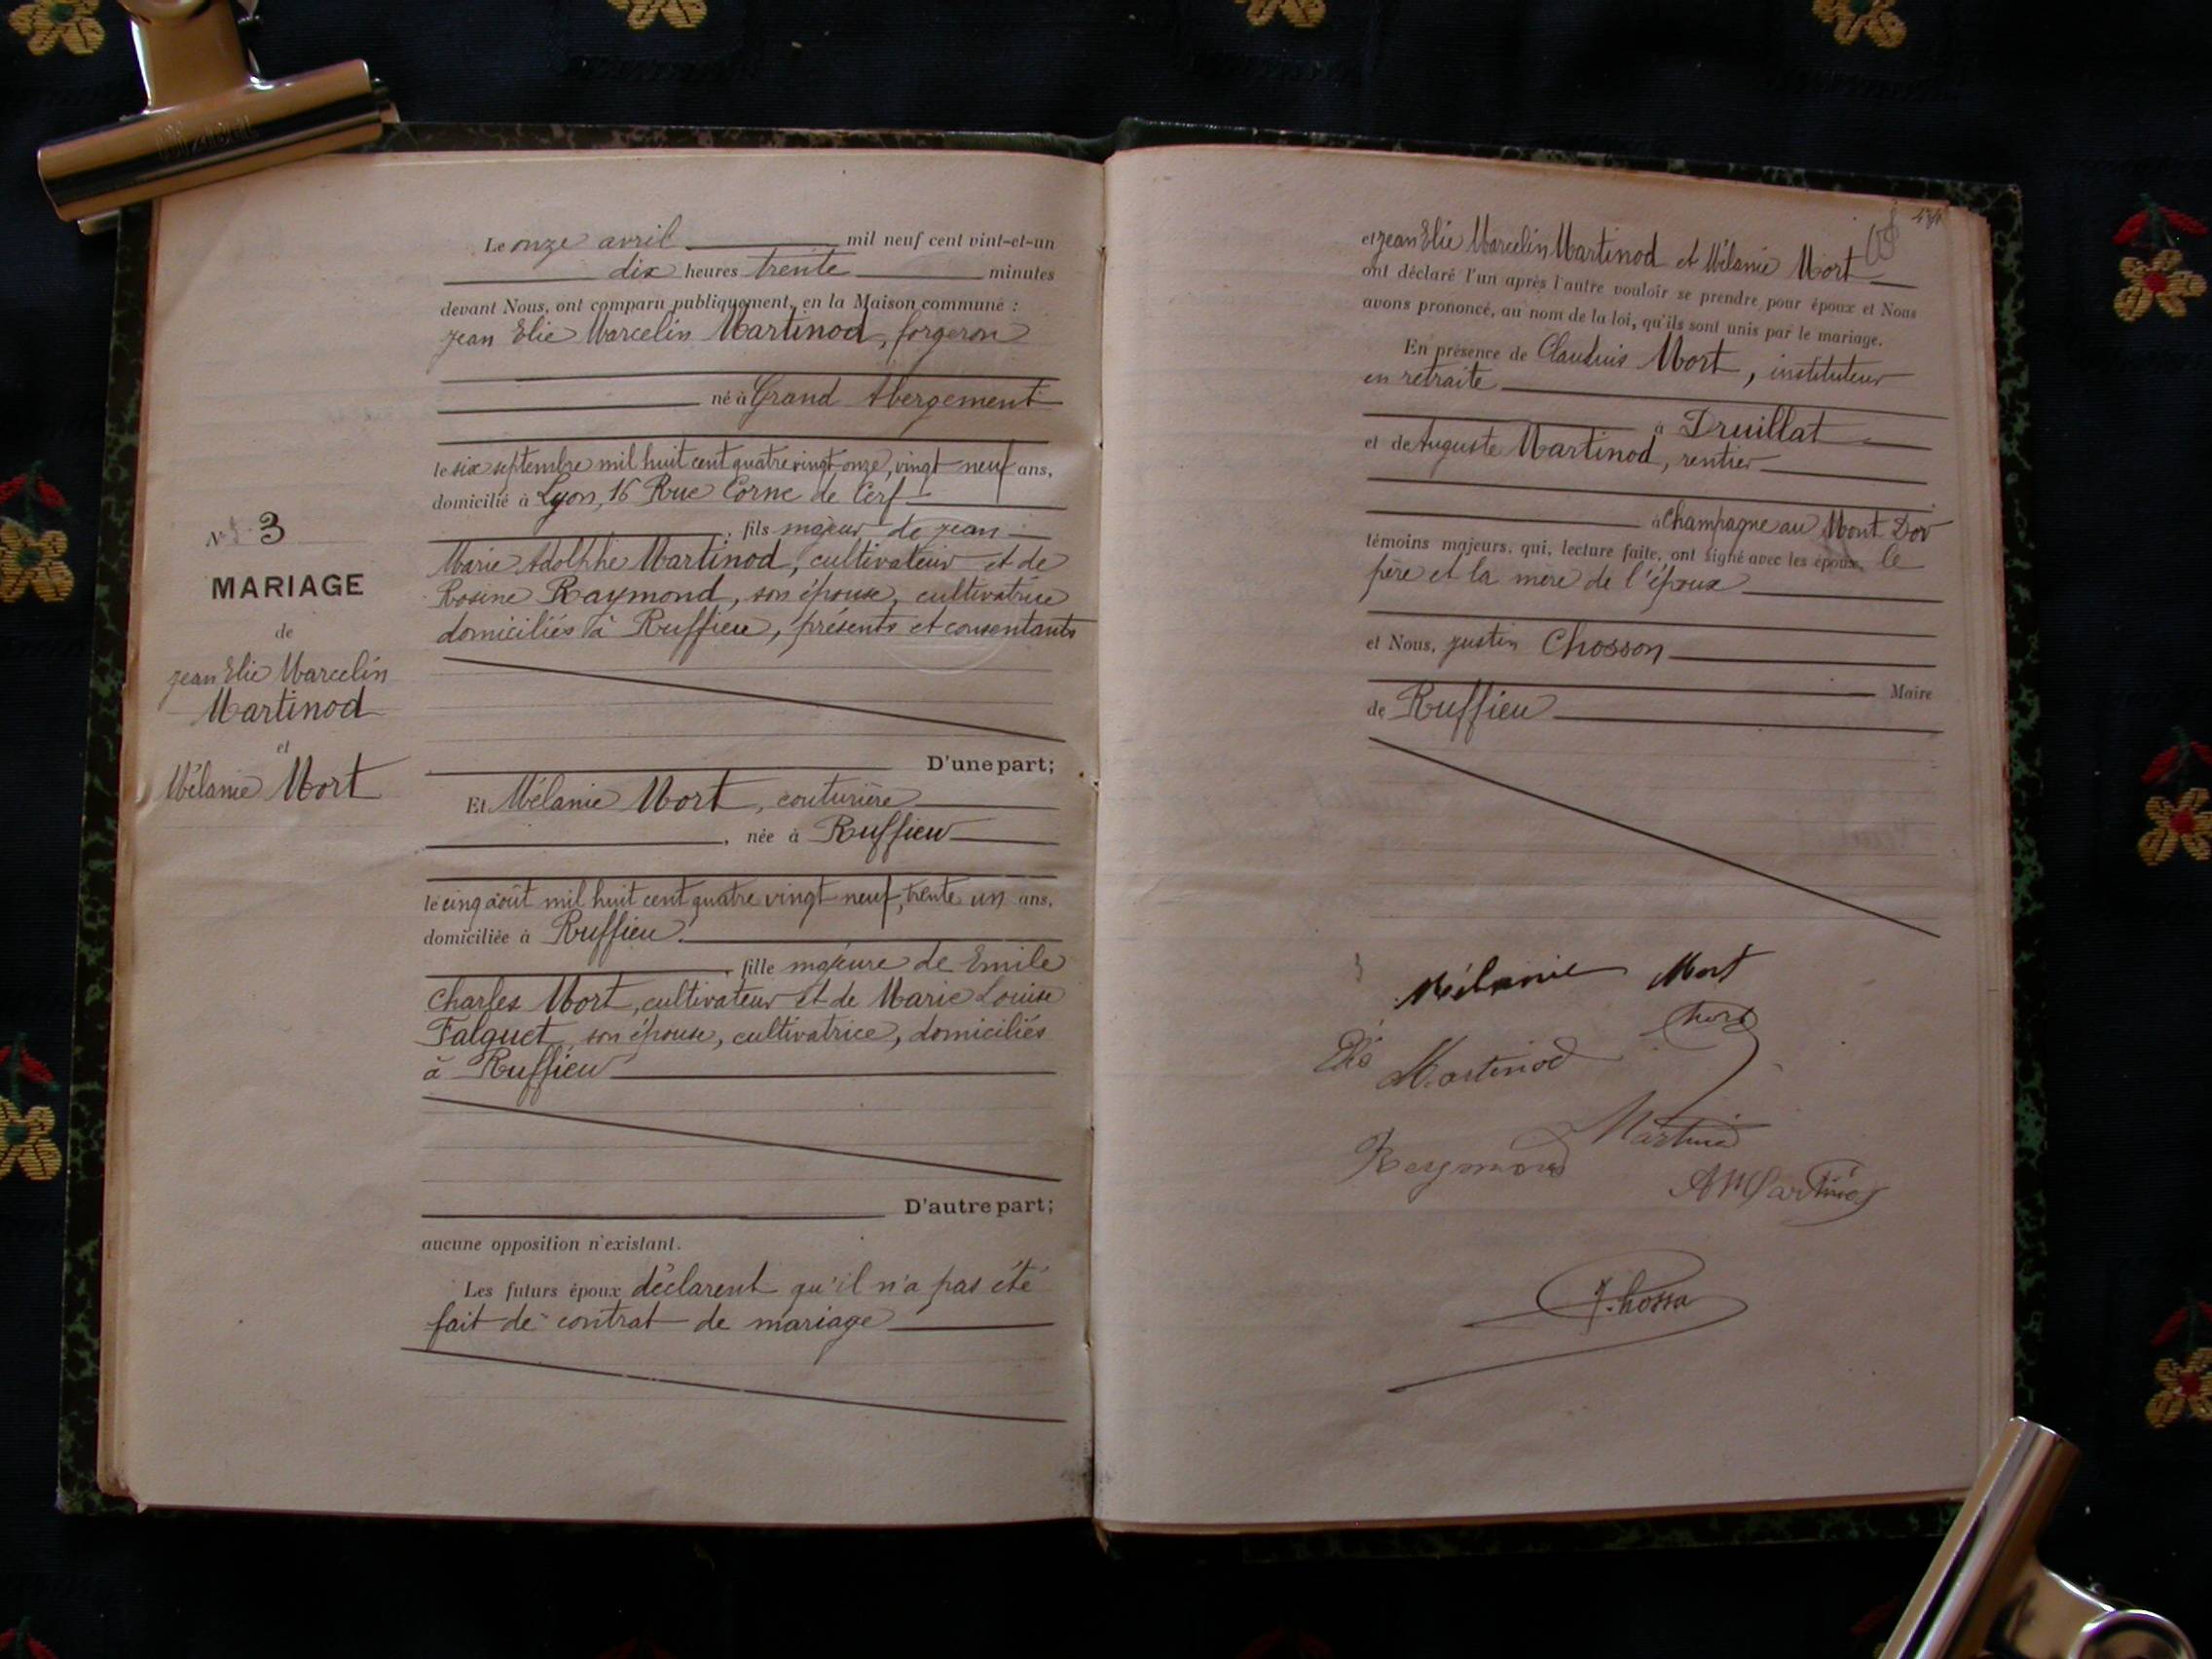 N° 3
MARIAGE
de
Jean Elie Marcelin
Martinod
et
Mélanie Mort
Le onze avril mil neuf cent vint-et-un
dix heures trente minutes
devant Nous, ont comparu publiquement, en la Maison commune :
Jean Elie Marcelin Martinod, forgeron
né à Grand Abergement
le six septembre mil huit cent quatre vingt onze, vingt neuf ans,
domicilié à Lyon, 16 Rue Corne de Cerf
, fils majeur de Jean
Marie Adolphe Martinod, cultivateur et de
Rosine Raymond, son épouse, cultivatrice
domiciliés à Ruffieu, présents et consentants
D'une part;
Et Mélanie Mort, couturière
, née à Ruffieu
le cinq août mil huit cent quatre vingt neuf, trente un ans,
domiciliée à Ruffieu
, fille majeure de Emile
Charles Mort, cultivateur et de Marie Louise
Falquet, son épouse, cultivatrice, domiciliés
à Ruffieu
D'autre part;
aucune opposition n'existant.
Les futurs époux déclarent qu'il n'a pas été
fait de contrat de mariage
et Jean Elie Marcelin Martinod et Mélanie Mort
ont déclaré l'un après l'autre vouloir se prendre pour époux et Nous
avons prononcé, au nom de la loi, qu'ils sont unis par le mariage.
En présence de Claudius Mort, instituteur
en retraite
à Druillat
et de Auguste Martinod, rentier
à Champagne au Mont Dor
témoins majeurs, qui, lecture faite, ont signé avec les époux, le
père et la mère de l'époux
et Nous, Justin Chosson
Maire
de Ruffieu
Mélanie Mort
Mort
Elie Martinod
Martinod
Raymond
A Martinod